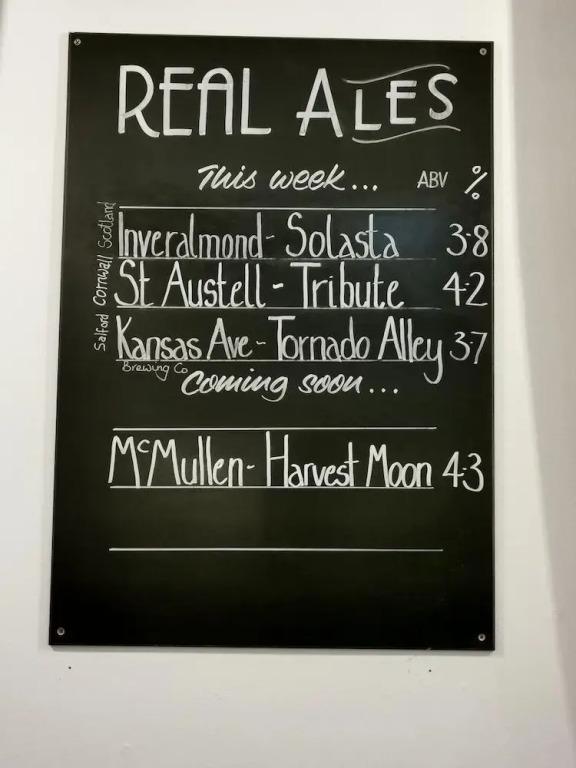 REAL ALES
This week... ABV %
Scotland
Inveralmond - Solasta 3.8
Cornwall
St Austell - Tribute 4.2
Salford
Kansas Ave - Tornado Alley 3.7
Brewing Co
Coming soon...
McMullen - Harvest Moon 4.3